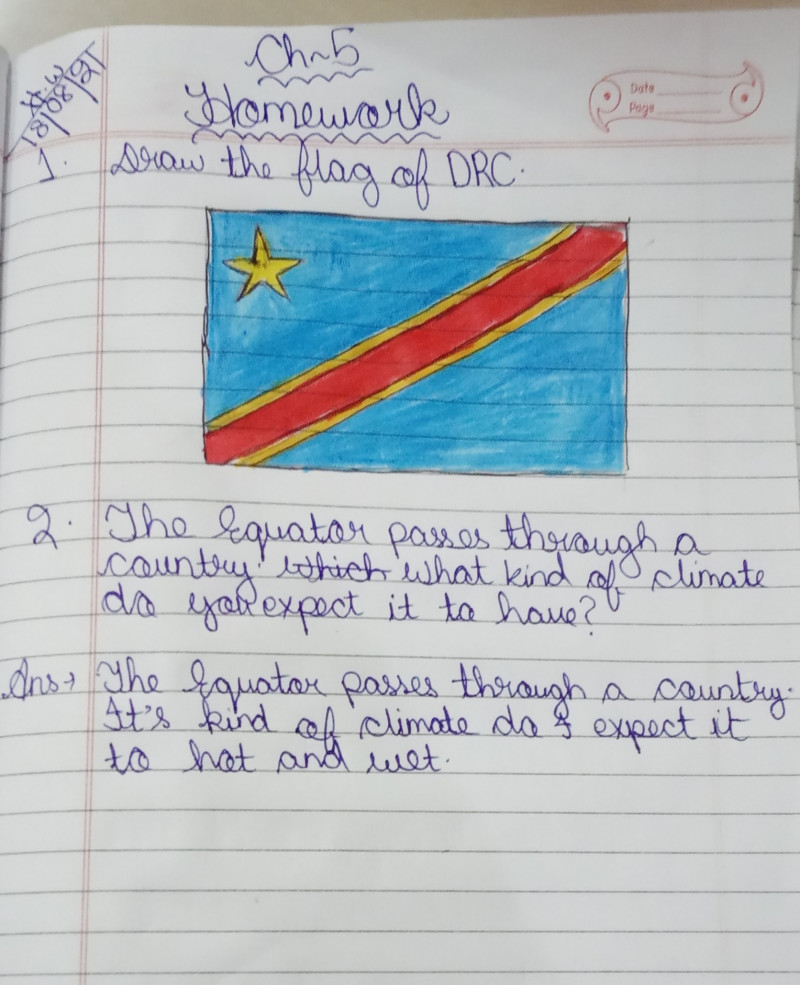 H.W
18/08/21
Ch~5
Homework
Date
Page
1. Draw the flag of DRC.
2. The Equator passes through a
country. which what kind of climate
do you expect it to have?
Ans→ The Equator passes through a country.
It's kind of climate do I expect it
to hot and wet.